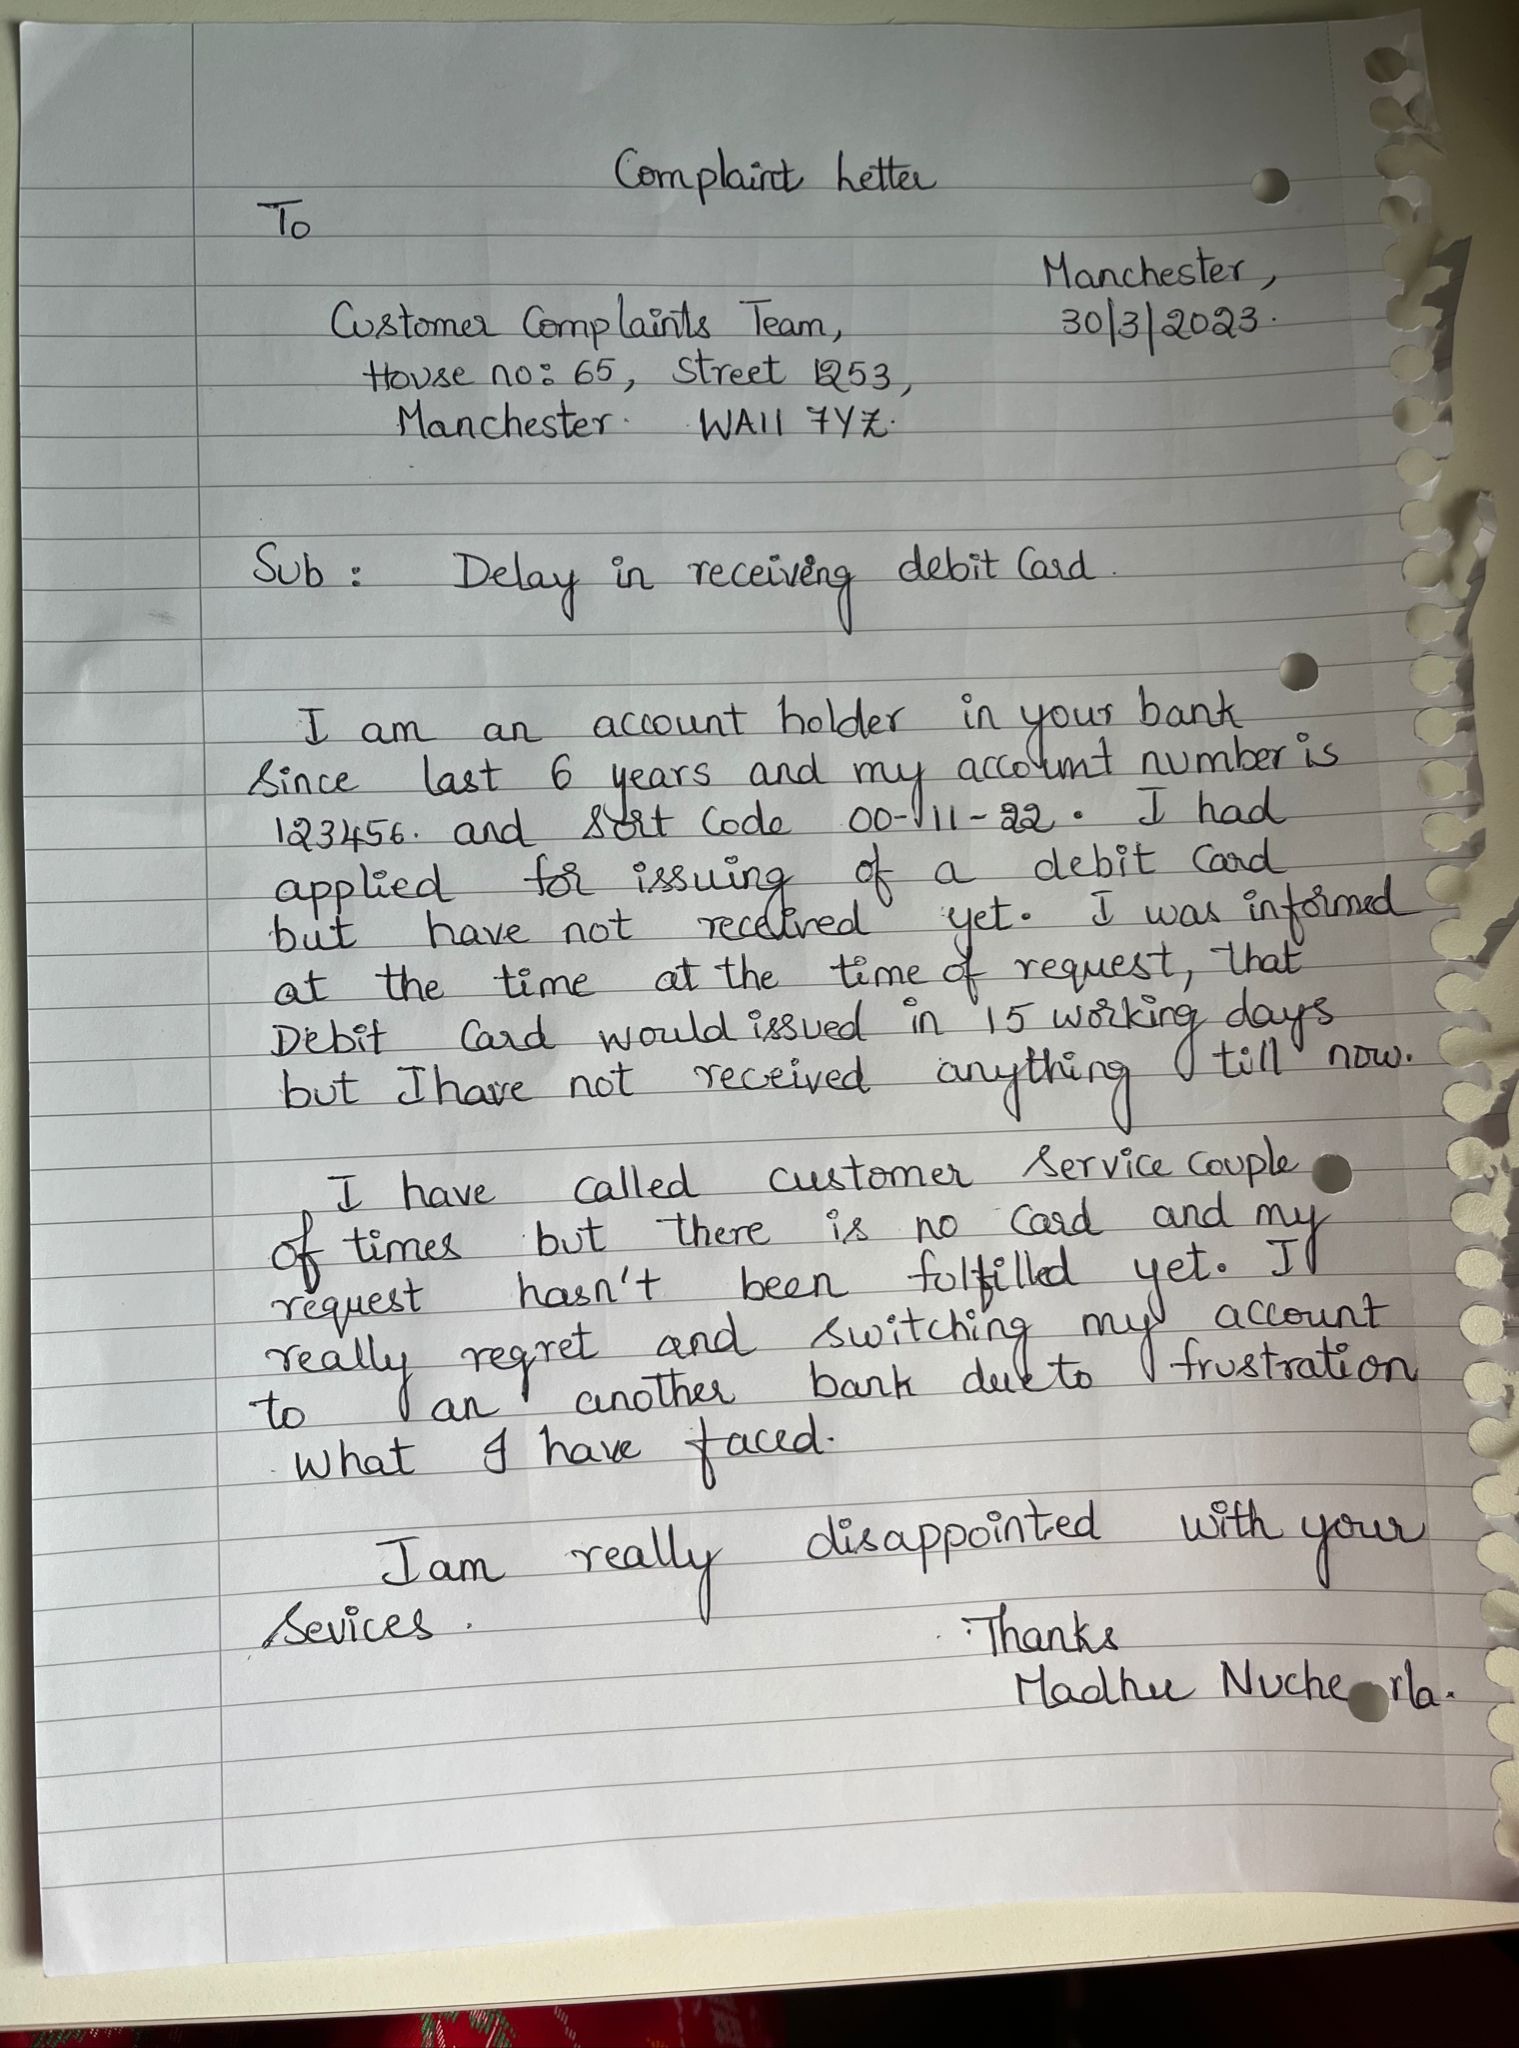 Complaint Letter
To
Manchester,
30/3/2023.
Customer Complaints Team,
House no: 65, Street 1253,
Manchester. WA11 7YZ.
Sub : Delay in receiving debit Card.
I am an account holder in your bank
since last 6 years and my account number is
123456. and Sort Code 00-11-22. I had
applied for issuing of a debit Card
but have not received yet. I was informed
at the time at the time of request, that
Debit Card would issued in 15 working days
but I have not received anything till now.
I have called customer service couple
of times but there is no Card and my
request hasn't been fulfilled yet. I
really regret and switching my account
to an another bank due to frustration
what I have faced.
I am really disappointed with your
sevices.
Thanks
Madhu Nucherla.